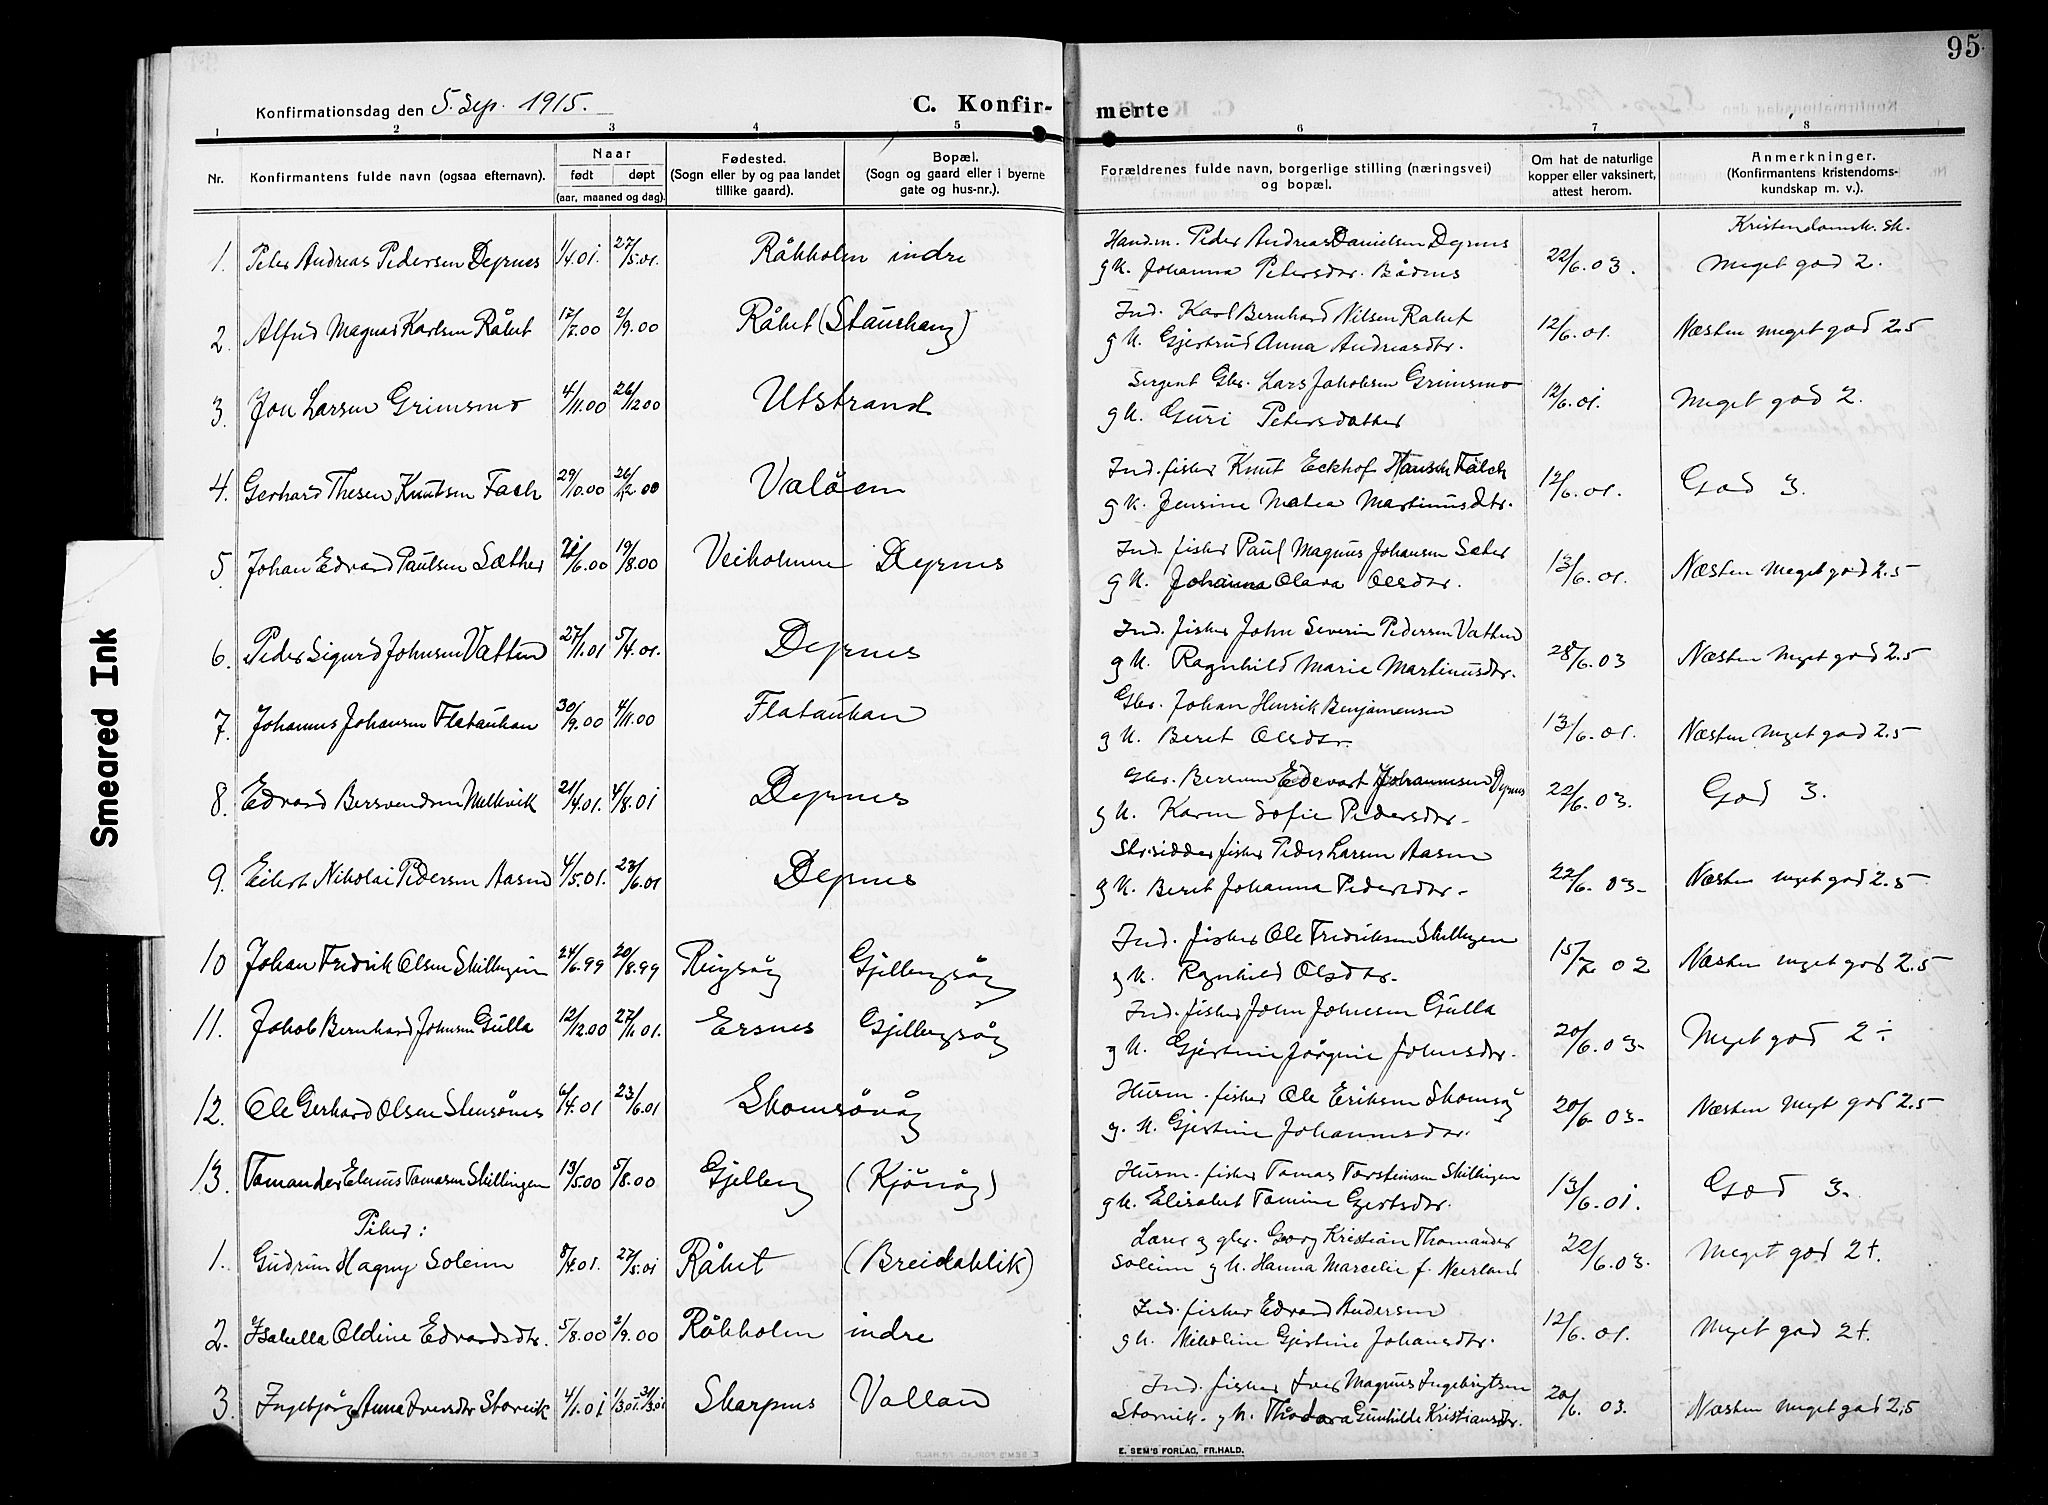 95
Konfirmationsdag den 5. Sep. 1915.
C. Konfir-
merte
1 2 3 4 5 6 7 8
Nr.
Konfirmantens fulde navn (ogsaa efternavn).
Naar
født
døpt
(aar, maaned og dag).
Fødested.
(Sogn eller by og paa landet
tillike gaard).
Bopæl.
(Sogn og gaard eller i byerne
gate og hus-nr.).
Forældrenes fulde navn, borgerlige stilling (næringsvei)
og bopæl.
Om hat de naturlige
kopper eller vaksinert,
attest herom.
Anmerkninger.
(Konfirmantens kristendoms-
kundskap m. v.).
Kristendomsk. sk.
1. Peter Andreas Pedersen Dyrnes 1/4.01. 27/5.01. Råkholm indre
Peder Andreas Danielsen Dyrnes
g k. Johanna Petersdtr. 22/6.03. Meget god 2.
2. Alfred Magnus Karlsen Råket 17/7.00 2/9.00 Råket (Staurhaug)
Ind. Karl Bernhard Nilsen Raket
g k. Gjertrud Anna Andreasdtr. 12/6.01. Næsten meget god 2.5
3. Jon Larsen Grimsmo 4/11.00 26/12 00 Utstrand
Sergent Gbr. Lars Jakobsen Grimsmo
g k. Guri Petersdatter 12/6.01. Meget god 2.
4. Gerhard Thesen Knutsen 29/10.00 26/12 00 Valöen
Ind. fisker Knut Eckhof Hansen Falch
g k. Jensine Matea Martinusdtr. 12/6.01. God 3.
5 Johan Edvard Paulsen Sæther 21/6.00 19/8.00 Veiholmen Dyrnes
Ind. fisker Paul Magnus Johansen Sæter
g k. Johanna Olava Olsdtr. 13/6.01. Næsten meget god 2.5
6. Peder Sigurd Johnsen Vatten 27/1.01 5/4.01. Dyrnes
Ind. fisker John Severin Pedersen Vatten
g k. Ragnhild Marie Martinusdtr. 28/6.03 Næsten meget god 2.5
7. Johannes Johansen Flatauken 30/9.00 4/11.00 Flataukan
Gbr. Johan Henrik Benjamensen
g k. Beret Olsdtr. 13/6.01. Næsten meget god 2.5
8. Edvard Bersvendsen Melkvik 21/4.01. 4/8.01 Dyrnes
Gbr. Edevart Johannesen Dyrnes
g k. Karen Sofie Pedersdtr. 22/6.03. God 3.
9. Eilert Nikolai Pedersen Aasen 4/5.01. 23/6.01 Dyrnes
Str.sidder fisker Peder Larsen Aasen
g k. Beret Johanna Pedersdtr. 22/6.03- Næsten meget god 2.5
10 Johan Fredrik Olsen Skillingen 24/6.99 20/8.99 Ringsöy Gjellingsöy
Ind. fisker Ole Fredriksen Skillingen
g k. Ragnhild Olsdtr. 15/7 02 Næsten meget god 2.5
11. Jakob Bernhard Johnsen Gulla 12/12 00 27/1 01. Ersnes Gjellingsöy
Ind. fisker John Johnsen Gulla
g k. Gjertine Jörgine Johnsdtr. 20/6.03- Meget god 2÷
12. Ole Gerhard Olsen 6/4.01 23/6.01 Skomsövåg
Husm. fisker Ole Eriksen Skomsög
g. k. Gjertine Johannesdtr. 20/6 03- Næsten meget god 2.5
13. Tomander Elenus Tomasen Skillingen 13/5.00 5/8.00 Gjelleng (Kjönöy)
Husm. fisker Tomas Torsteinsen Skillingen
g k. Elisabet Tomine Gjertsdtr. 13/6.01. God 3-
Piker:
1. Gudrun Hagny Soleim 8/4.01. 27/5.01 Råket (Breidablik)
Lærer og gbr. Georg Kristian Thomander
Soleim g k. Hanna Marcelie f. Neerland 22/6.03. Meget god 2+.
2. Isabella Oldine Edvardsdtr. 5/8.00 2/9.00 Råkholm indre
Ind. fisker Edvard Andersen
g k. Nikoline Gjertine Johansdtr. 12/6.01. Meget god 2+.
3. Ingebjörg Anna Iversdtr Storvik 4/1.01 1/3.01. 31/3.01 Skarpnes Vollan
Ind. fisker Iver Magnus Ingebrigtsen
Storvik. g k. Thodora Gunhilde Kristiansdtr. 20/6. 03. Næsten meget god 2,5
E. SEM'S FORLAG, FR.HALD.
Smeared Ink